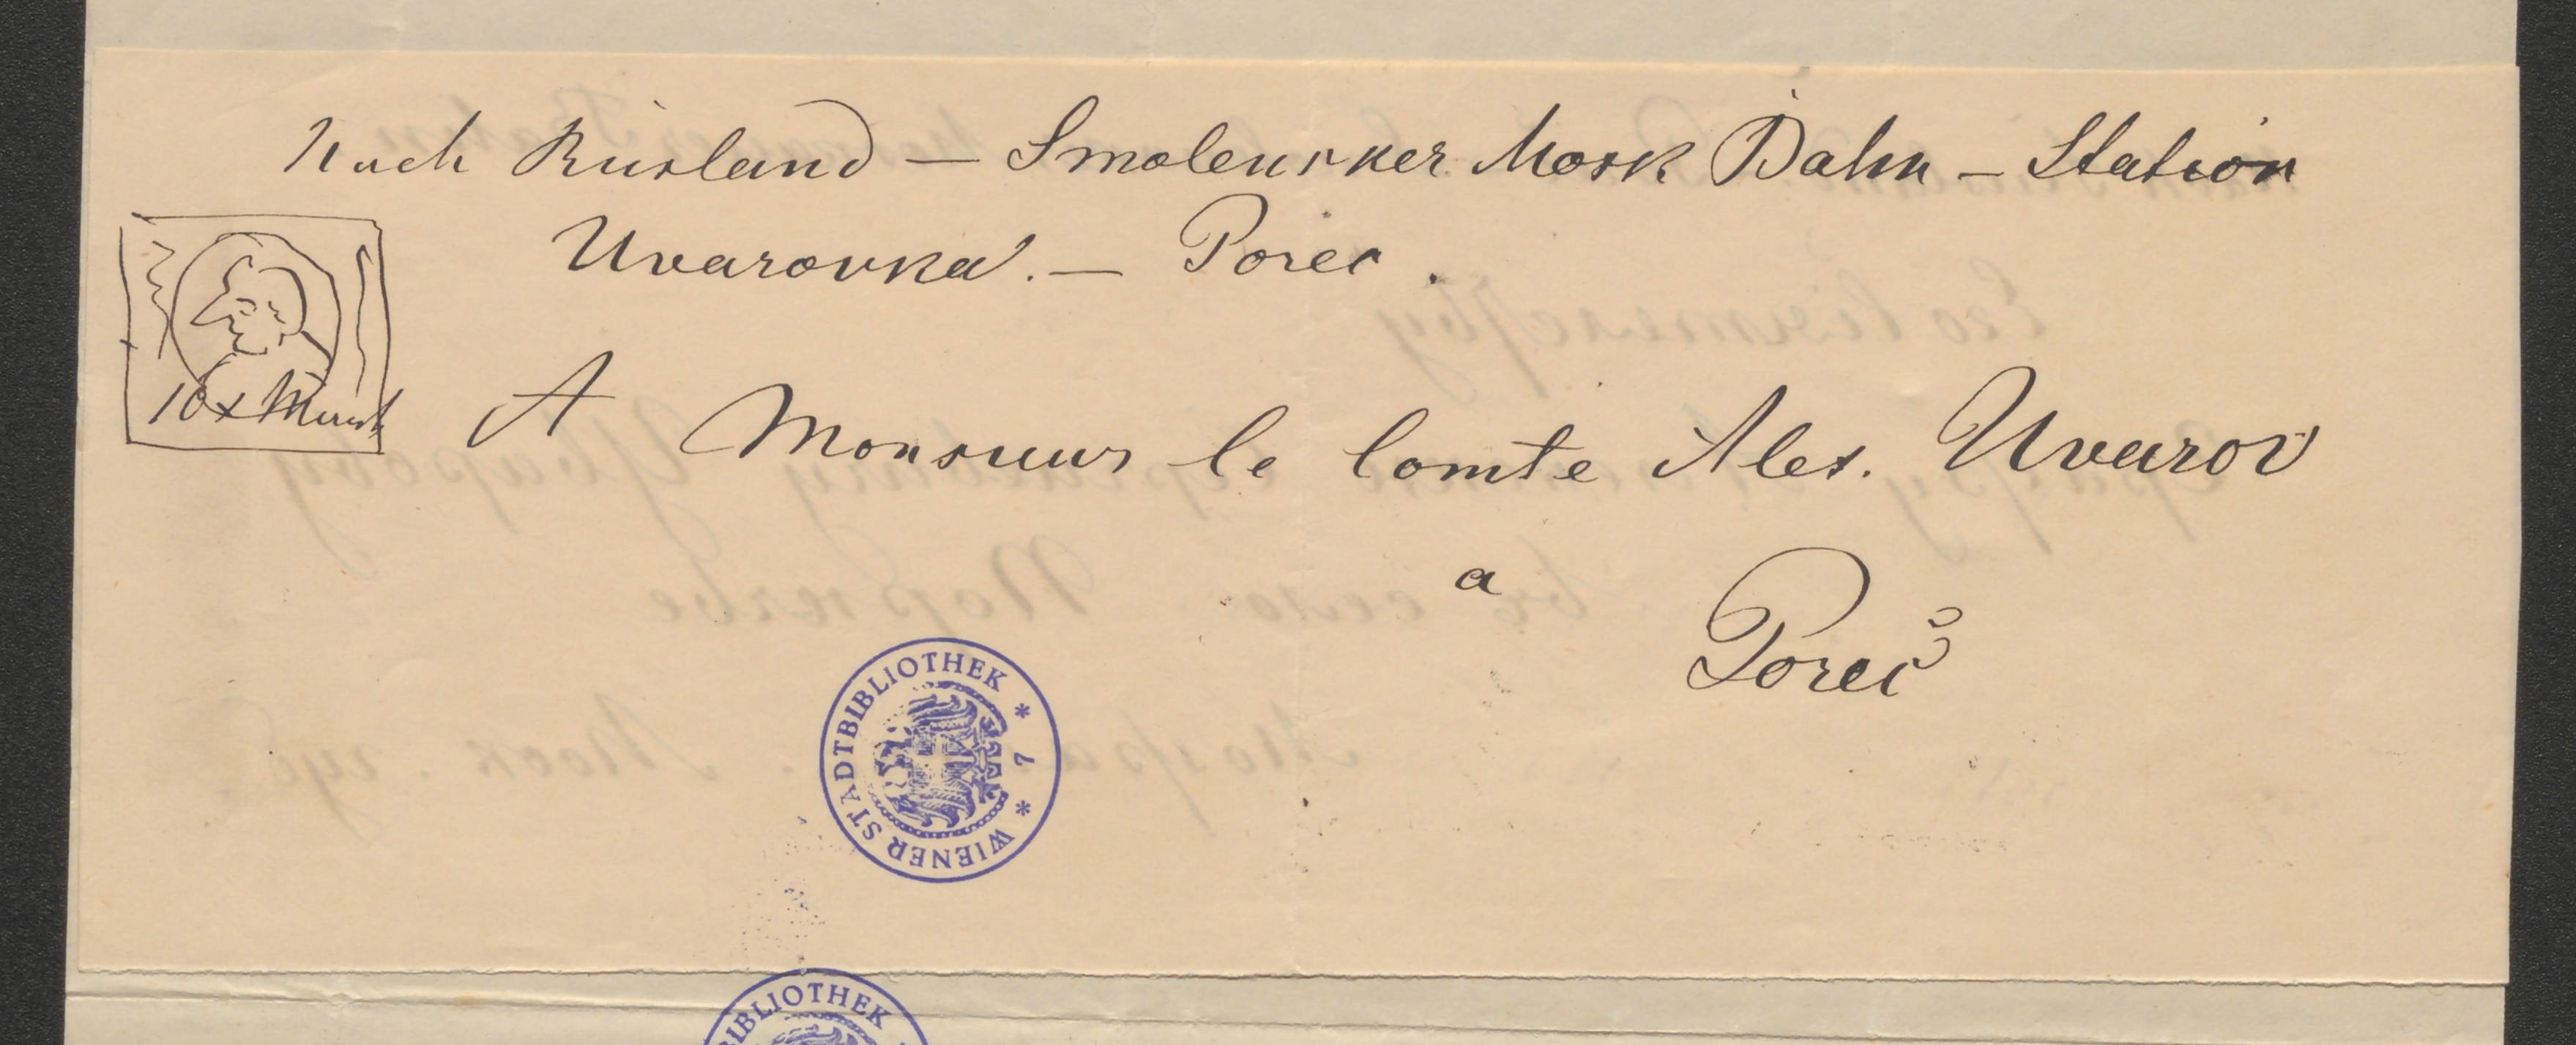 Nach Rusland — Smolensker Mosk Bahn — Station
Uvarovka. — Porec.
10x
A Monsieur le Comte Alex. Uvarov
a
Poreč
WIENER STADTBIBLIOTHEK * 7 *
BIBLIOTHEK